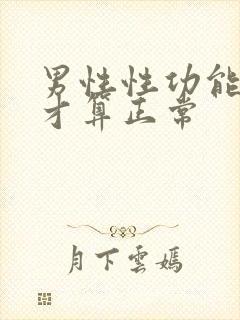 男性性功能
才算正常
月下云嫣